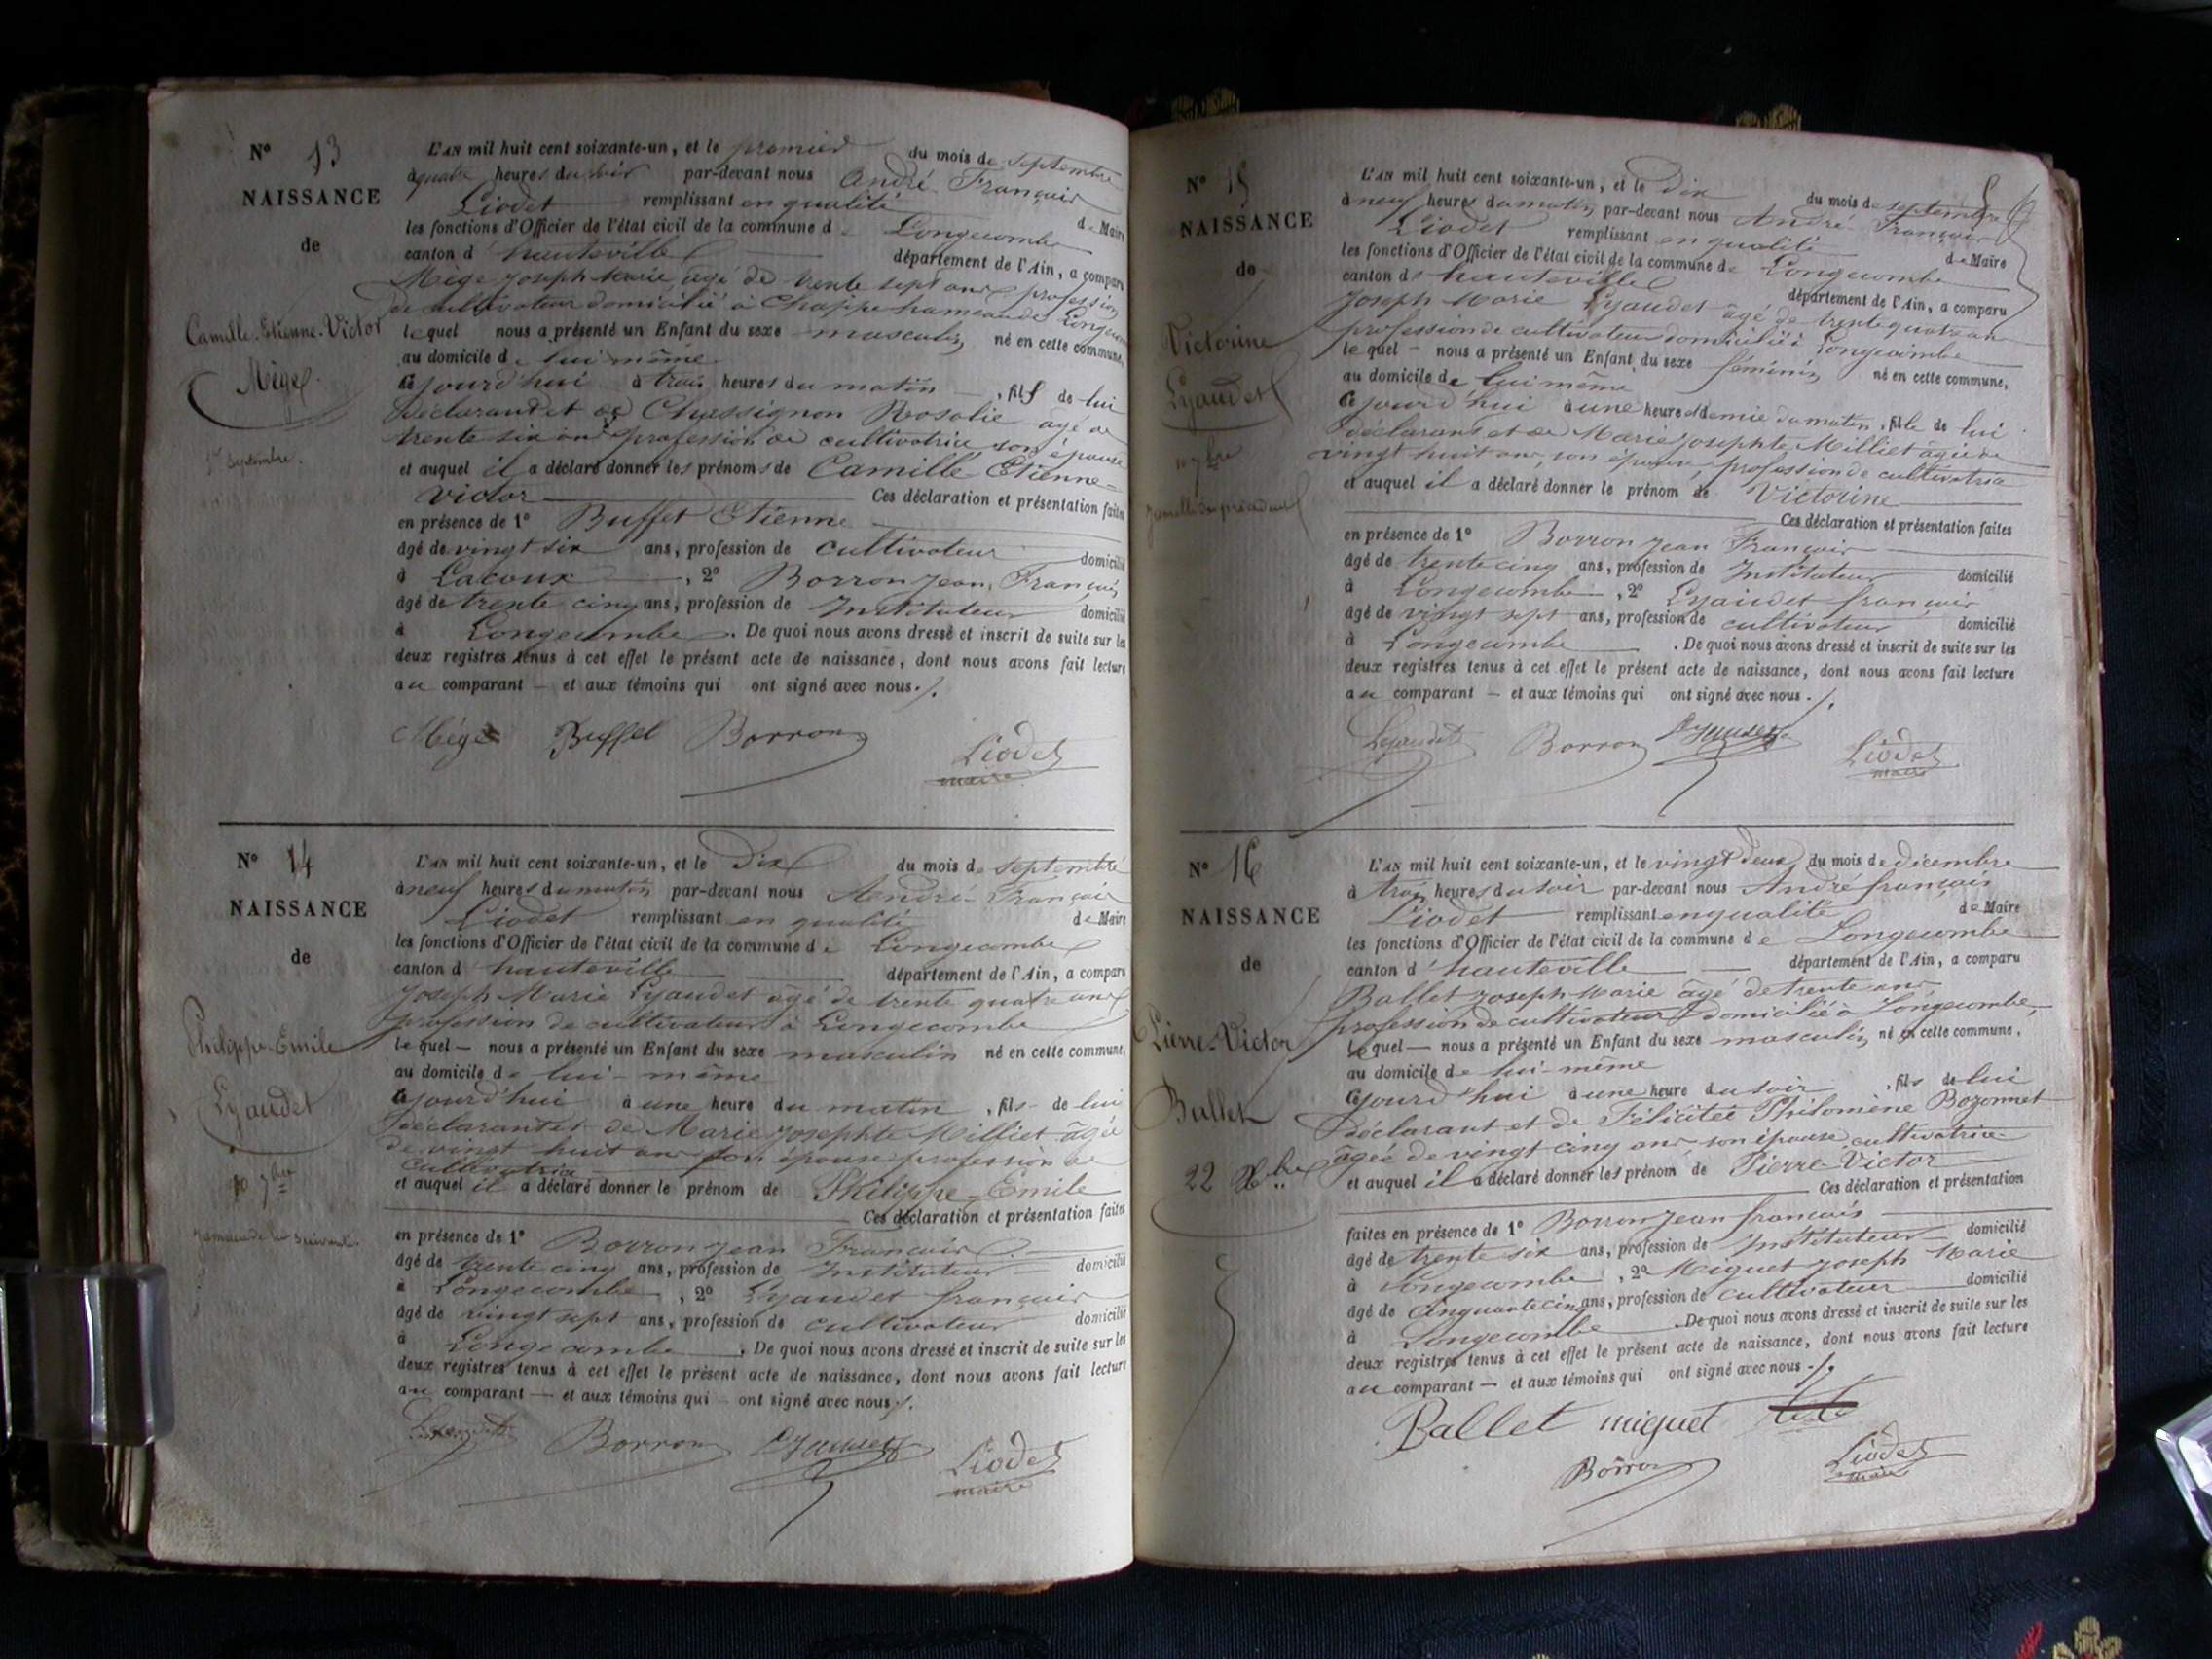 N° 13
NAISSANCE
de
Camille-Etienne-Victor
Mège
1er Septembre.
L'AN mil huit cent soixante-un, et le premier du mois de septembre
à quatre heures du soir par-devant nous André François
Liodet remplissant en qualité de Maire
les fonctions d'Officier de l'état civil de la commune de Longecombe
canton d'hauteville département de l'Ain, a comparu
Mège Joseph Marie, âgé de trente sept ans profession
de cultivateur domicilié à Chappe hameau de Longecombe
lequel nous a présenté un Enfant du sexe masculin, né en cette commune,
au domicile de lui même
cejourd'hui à trois heures du matin, fils de lui
déclarant et de Chassignon Rosalie âgé de
trente six ans profession de cultivatrice son épouse
et auquel il a déclaré donner les prénoms de Camille-Etienne-
Victor Ces déclaration et présentation faites
en présence de 1° Buffet Etienne
âgé de vingt six ans, profession de cultivateur domicilié
à Lacoux, 2° Borron Jean, François
âgé de trente cinq ans, profession de Instituteur domicilié
à Longecombe. De quoi nous avons dressé et inscrit de suite sur les
deux registres tenus à cet effet le présent acte de naissance, dont nous avons fait lecture
au comparant — et aux témoins qui ont signé avec nous./.
Mège Buffet Borron Liodet
maire
N° 14
NAISSANCE
de
Philippe-Emile
Lyaudet
10 7bre
jumeau de la suivante
L'AN mil huit cent soixante-un, et le Dix du mois de septembre
à neuf heures du matin par-devant nous André-François
Liodet remplissant en qualité de Maire
les fonctions d'Officier de l'état civil de la commune de Longecombe
canton d'hauteville département de l'Ain, a comparu
Joseph Marie Lyaudet âgé de trente quatre ans
profession de cultivateur à Longecombe
lequel — nous a présenté un Enfant du sexe masculin né en cette commune,
au domicile de lui-même
cejourd'hui à une heure du matin, fils de lui
déclarant et de Marie Josephte Milliet âgée
de vingt huit ans son épouse profession de
cultivatrice
et auquel il a déclaré donner le prénom de Philippe-Emile
Ces déclaration et présentation faites
en présence de 1° Borron Jean François
âgé de trente cinq ans, profession de Instituteur domicilié
à Longecombe, 2° Lyaudet françois
âgé de vingt sept ans, profession de cultivateur domicilié
à Longecombe. De quoi nous avons dressé et inscrit de suite sur les
deux registres tenus à cet effet le présent acte de naissance, dont nous avons fait lecture
au comparant — et aux témoins qui ont signé avec nous./.
Lyaudet Borron Lyaudet Liodet
maire
N° 15
NAISSANCE
de
Victorine
Lyaudet
10 7bre
jumelle du précédent
L'AN mil huit cent soixante-un, et le Dix du mois de septembre
à neuf heures du matin, par-devant nous André François
Liodet remplissant en qualité de Maire
les fonctions d'Officier de l'état civil de la commune de Longecombe
canton d'hauteville département de l'Ain, a comparu
Joseph Marie Lyaudet âgé de trente quatre ans
profession de cultivateur domicilié à Longecombe
lequel — nous a présenté un Enfant du sexe féminin, né en cette commune,
au domicile de lui même
cejourd'hui à une heure et demie du matin, fille de lui
déclarant et de Marie Josephte Milliet âgée de
vingt huit ans, son épouse profession de cultivatrice
et auquel il a déclaré donner le prénom de Victorine
Ces déclaration et présentation faites
en présence de 1° Borron Jean François
âgé de trente cinq ans, profession de Instituteur domicilié
à Longecombe, 2° Lyaudet françois
âgé de vingt sept ans, profession de cultivateur domicilié
à Longecombe. De quoi nous avons dressé et inscrit de suite sur les
deux registres tenus à cet effet le présent acte de naissance, dont nous avons fait lecture
au comparant — et aux témoins qui ont signé avec nous./.
Lyaudet Borron Lyaudet Liodet
maire
N° 16
NAISSANCE
de
Pierre-Victor
Ballet
22 Xbre
L'AN mil huit cent soixante-un, et le vingt deux du mois de décembre
à trois heures du soir par-devant nous André françois
Liodet remplissant en qualité de Maire
les fonctions d'Officier de l'état civil de la commune de Longecombe
canton d'hauteville département de l'Ain, a comparu
Ballet Joseph Marie âgé de trente ans
profession de cultivateur domicilié à Longecombe,
lequel — nous a présenté un Enfant du sexe masculin, né en cette commune,
au domicile de lui-même
cejourd'hui à une heure du soir, fils de lui
déclarant et de Félicitée Philomène Bozonnet
âgée de vingt cinq ans son épouse cultivatrice
et auquel il a déclaré donner les prénom de Pierre-Victor
Ces déclaration et présentation
faites en présence de 1° Borron Jean françois
âgé de trente six ans, profession de Instituteur domicilié
à Longecombe, 2° Miguet Joseph Marie
âgé de cinquante cinq ans, profession de cultivateur domicilié
à Longecombe. De quoi nous avons dressé et inscrit de suite sur les
deux registres tenus à cet effet le présent acte de naissance, dont nous avons fait lecture
au comparant — et aux témoins qui ont signé avec nous./.
Ballet miguet
Borron Liodet
maire